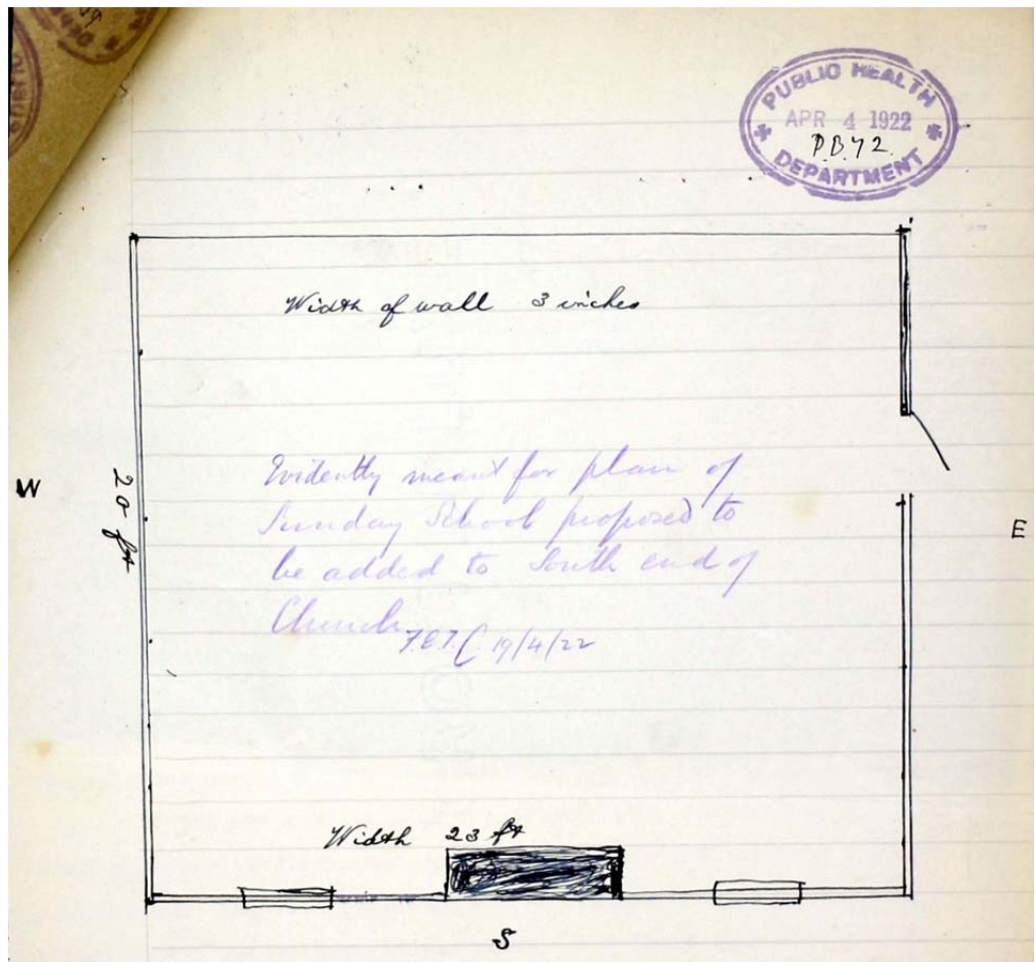 PUBLIC HEALTH
APR 4 1922
P.B. 42.
DEPARTMENT
Width of wall 3 inches
Evidently meant for plan of
W
20 ft
Sunday School proposed to
E
be added to South end of
Church
19/4/22
Width 23 ft
S